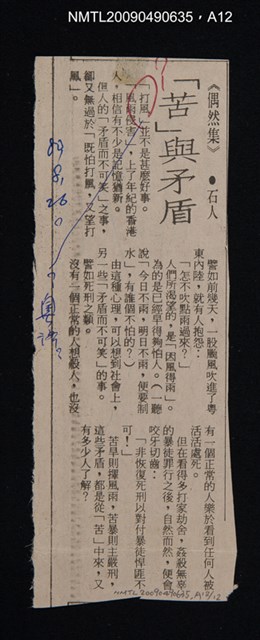 NMTL20090490635，A12
《偶然集》
●石人
「苦」與矛盾
「打風」並不是甚麼好事。
「風雨侵害」，上了年紀的香港
人，相信有不少是記憶猶新。
但人的「矛盾而不可笑」之事，
卻又無過於「既怕打風，又望打
風」。
譬如前幾天，一股颱風吹進了粵
東內陸，就有人抱怨：
「怎不吹點雨過來？」
人們所渴望的，是「因風得雨」。
為的是已經旱得夠怕人。（一聽
說「今日不雨，明日不雨，便要制
水」，有誰個不怕的？）
由這種心理，可以想到社會上，
另一些「矛盾而不可笑」的事。
譬如死刑之類。
沒有一個正常的人想殺人，也沒
有一個正常的人樂於看到任何人被
活活處死。
但在看得多打家劫舍，姦殺無辜
的暴徒罪行之後，自然而然，便會
咬牙切齒：
「非恢復死刑以對付暴徒悍匪不
可！」
苦旱則擇風雨，苦暴則主嚴刑，
這些矛盾，都是從「苦」中來，又
有多少人了解？
NMTL20090490635, A12/12